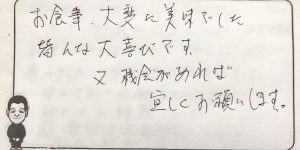 お食事、大変に美味でした
皆んな大喜びです。
又機会があれば
宜しくお願いします。